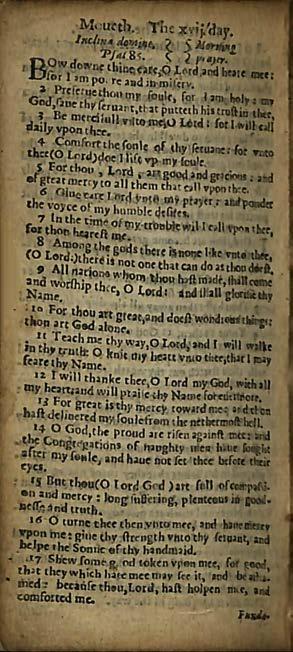 Moueth. The xvij/day.
Inclina domine. Morning
Psal 85. prayer.
BOw downe thine eare, O Lord, and heare mee:
for I am poore and in misery.
2 Preserue thou my soule, for I am holy: my
God, saue thy seruant, that putteth his trust in thee.
3 Be mercifull vnto me, O Lord: for I will call
daily vpon thee.
4 Comfort the soule of thy seruant: for vnto
thee (O Lord) doe I lift vp my soule.
5 For thou, Lord, art good and gracious: and
of great mercy to all them that call vpon thee.
6 Giue eare Lord vnto my prayer: and ponder
the voyce of my humble desires.
7 In the time of my trouble will I call vpon thee,
for thou hearest me.
8 Among the gods there is none like vnto thee,
(O Lord:) there is not one that can do as thou doest.
9 All nations whom thou hast made, shall come
and worship thee, O Lord: and shall glorifie thy
Name.
10 For thou art great, and doest wondrous things:
thou art God alone.
11 Teach me thy way, O Lord, and I will walke
in thy truth: O knit my heart vnto thee, that I may
feare thy Name.
12 I will thanke thee, O Lord my God, with all
my heart: and will praise thy Name for euermore.
13 For great is thy mercy toward me: and thou
hast deliuered my soule from the nethermost hell.
14 O God, the proud are risen against mee: and
the Congregations of naughty men haue sought
after my soule, and haue not set thee before their
eyes.
15 But thou (O Lord God) art full of compassi-
on and mercy: long suffering, plenteous in good-
nesse and truth.
16 O turne thee then vnto mee, and haue mercy
vpon me: giue thy strength vnto thy seruant, and
helpe the Sonne of thy handmaid.
17 Shew some good token vpon mee, for good,
that they which hate mee may see it, and be asha-
med: because thou, Lord, hast holpen me, and
comforted me.
Funda-